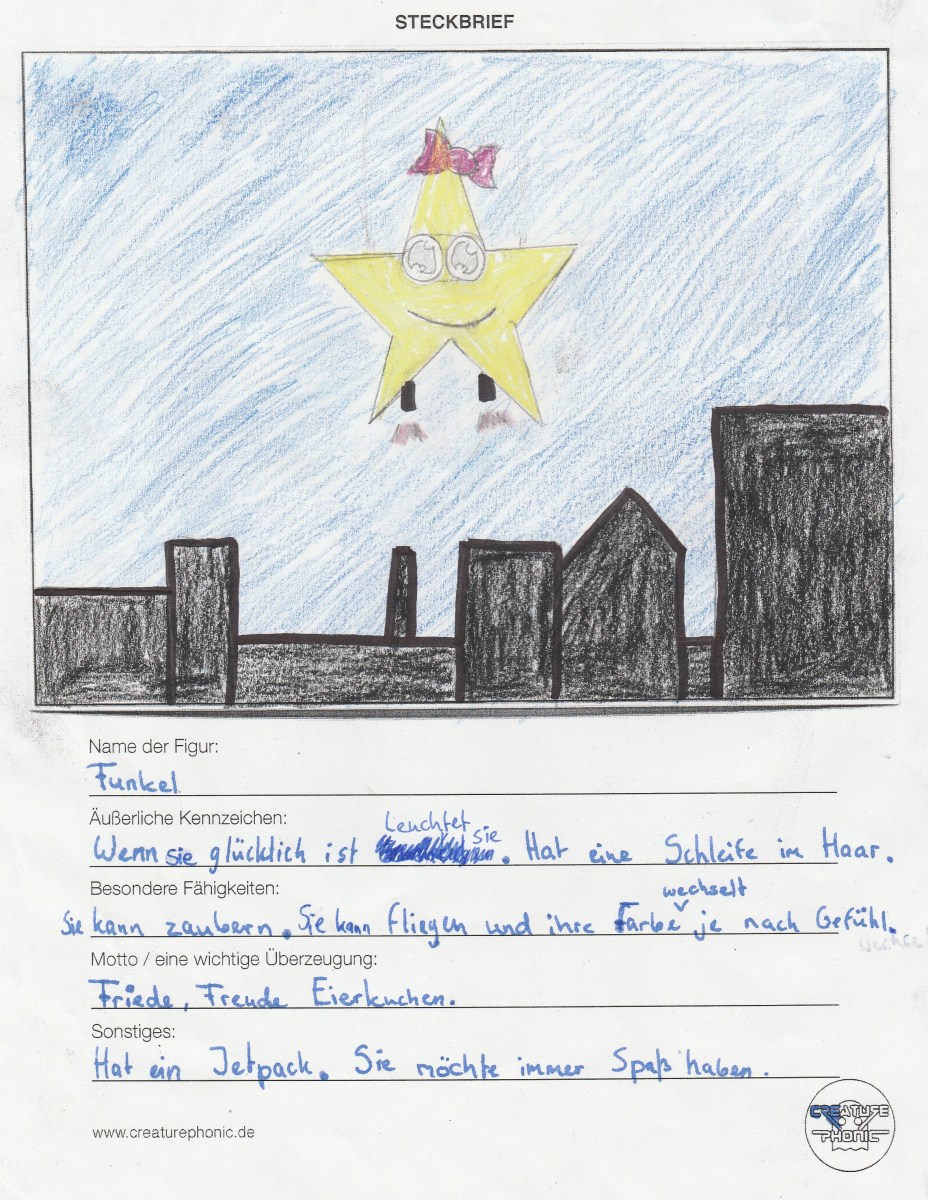 STECKBRIEF
Name der Figur:
Funkel
Äußerliche Kennzeichen:
Wenn sie glücklich ist leuchtet sie. Hat eine Schleife im Haar.
Besondere Fähigkeiten:
Sie kann zaubern. Sie kann fliegen und ihre Farbe wechselt je nach Gefühl.
Motto / eine wichtige Überzeugung:
Friede, Freude Eierkuchen.
Sonstiges:
Hat ein Jetpack. Sie möchte immer Spaß haben.
www.creaturephonic.de
CREATURE
PHONIC